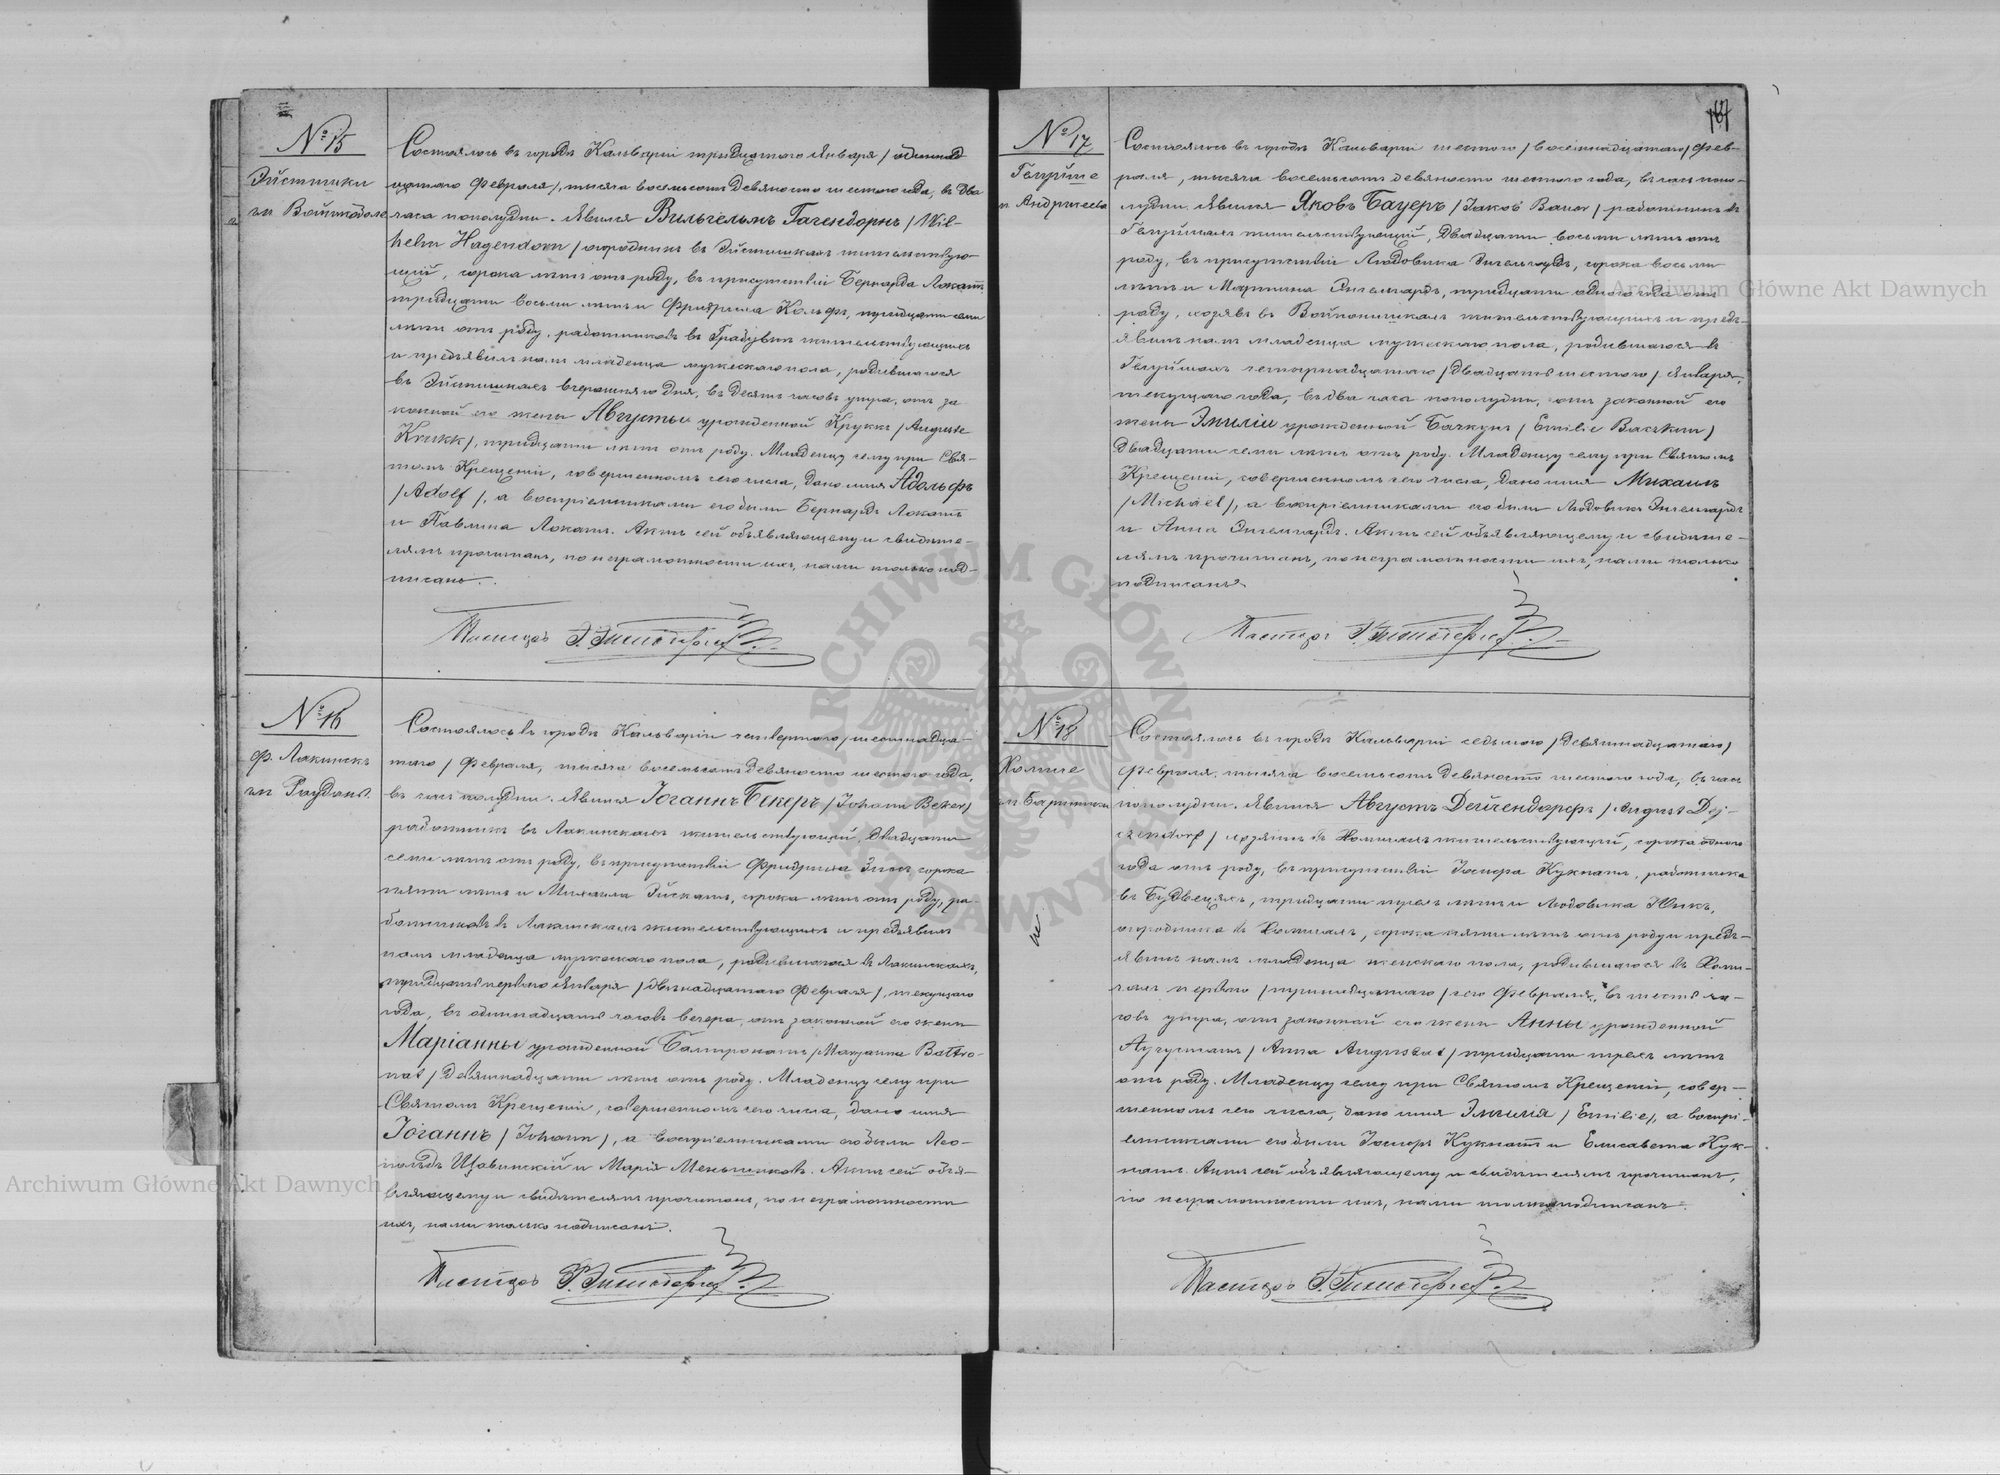 № 15
Эйстишки
гм Войткобole
Состоялось въ городѣ Кальваріи тридцатаго Января / одиннад
цатаго Февраля /, тысяча восемьсотъ девяносто шестаго года, въ два
часа пополудни. Явился Вильгельмъ Гагендорнъ / Wil-
helm Hagendorn / огородникъ въ Эйстишкахъ жительствую-
щій, сорока лѣтъ отъ роду, въ присутствіи Бернарда Локатъ,
тридцати восьми лѣтъ и Фридриха Кольфъ, тридцати семи
лѣтъ отъ роду, работниковъ въ жительствующихъ
и предъявилъ намъ младенца мужескаго пола, родившагося
въ Эйстишкахъ вчерашняго дня, въ десять часовъ утра, отъ за
конной его жены Августы урожденной Круккъ / Auguste
Krukk /, тридцати лѣтъ отъ роду. Младенцу сему при Свя-
томъ Крещеніи, совершенномъ сего числа, дано имя Адольфъ
/ Adolf /, а воспріемниками его были Бернардъ Локатъ
и Павлина Локатъ. Актъ сей объявляющему и свидѣте-
лямъ прочитанъ, по неграмотности ихъ, нами только под-
писанъ.
Пасторъ
№ 16
Ф. Лакинскъ
гм Раудань.
Состоялось въ городѣ Кальваріи четвертаго / шестнадца-
таго / Февраля, тысяча восемьсотъ девяносто шестаго года,
въ часъ полудни. Явился Іоганнъ Бекеръ / Johann Beker /
работникъ въ Лакинскахъ жительствующій, двадцати
семи лѣтъ отъ роду, въ присутствіи Фридриха сорока
пяти лѣтъ и Михаила сорока лѣтъ отъ роду, ра-
ботниковъ въ Лакинскахъ жительствующихъ и предъявилъ
намъ младенца мужескаго пола, родившагося въ Лакинскахъ,
тридцать перваго Января / двѣнадцатаго Февраля /, текущаго
года, въ одиннадцать часовъ вечера, отъ законной его жены
Маріанны урожденной Балтронатъ / Maryanna Battro-
nat / девятнадцати лѣтъ отъ роду. Младенцу сему при
Святомъ Крещеніи, совершенномъ сего числа, дано имя
Іоганнъ / Johann /, а воспріемниками его были Лео-
польдъ Щавинскій и Марія Меньшиковъ. Актъ сей объя-
вляющему и свидѣтелямъ прочитанъ, по неграмотности
ихъ, нами только подписанъ.
Пасторъ
№ 17
Гелуйше
гм Андржеево
Состоялось въ городѣ Кальваріи шестаго / восемнадцатаго / Фев-
раля, тысяча восемьсотъ девяносто шестаго года, въ часъ попо-
лудни. Явился Яковъ Бауеръ / Jakob Bauer / работникъ въ
жительствующій, двадцати восьми лѣтъ отъ
роду, въ присутствіи Людовика Энгельгардъ, сорока восьми
лѣтъ и Мартина Энгельгардъ, тридцати одного года отъ
роду, хозяевъ въ жительствующихъ и предъ-
явилъ намъ младенца мужескаго пола, родившагося въ
четырнадцатаго / двадцать шестаго / Января,
текущаго года, въ два часа пополудни, отъ законной его
жены Эмиліи урожденной Бачкунъ / Emilie Baczkun /
двадцати семи лѣтъ отъ роду. Младенцу сему при Святомъ
Крещеніи, совершенномъ сего числа, дано имя Михаилъ
/ Michael /, а воспріемниками его были Людовикъ Энгельгардъ
и Анна Энгельгардъ. Актъ сей объявляющему и свидѣте-
лямъ прочитанъ, по неграмотности ихъ, нами только
подписанъ.
Пасторъ
№ 18
Состоялось въ городѣ Кальваріи седьмаго / девятнадцатаго /
Февраля, тысяча восемьсотъ девяносто шестаго года, въ часъ
пополудни. Явился Августъ Дейчендорфъ / August Dej-
czendorf / хозяинъ въ жительствующій, сорока одного
года отъ роду, въ присутствіи Іосифа Кукнатъ, работника
въ Будвецяхъ, тридцати трехъ лѣтъ и Людовика Юнкъ,
огородника въ сорока пяти лѣтъ отъ роду и предъ-
явилъ намъ младенца женскаго пола, родившагося въ
перваго / тринадцатаго / сего Февраля, въ шесть ча-
совъ утра, отъ законной его жены Анны урожденной
Аугустатъ / Anna Augustat / тридцати трехъ лѣтъ
отъ роду. Младенцу сему при Святомъ Крещеніи, совер-
шенномъ сего числа, дано имя Эмилія / Emilie /, а воспрі-
емниками его были Іосифъ Кукнатъ и Елисавета Кук-
натъ. Актъ сей объявляющему и свидѣтелямъ прочитанъ,
по неграмотности ихъ, нами только подписанъ.
Пасторъ
Archiwum Główne Akt Dawnych
Archiwum Główne Akt Dawnych
ARCHIWUM GŁÓWNE AKT DAWNYCH